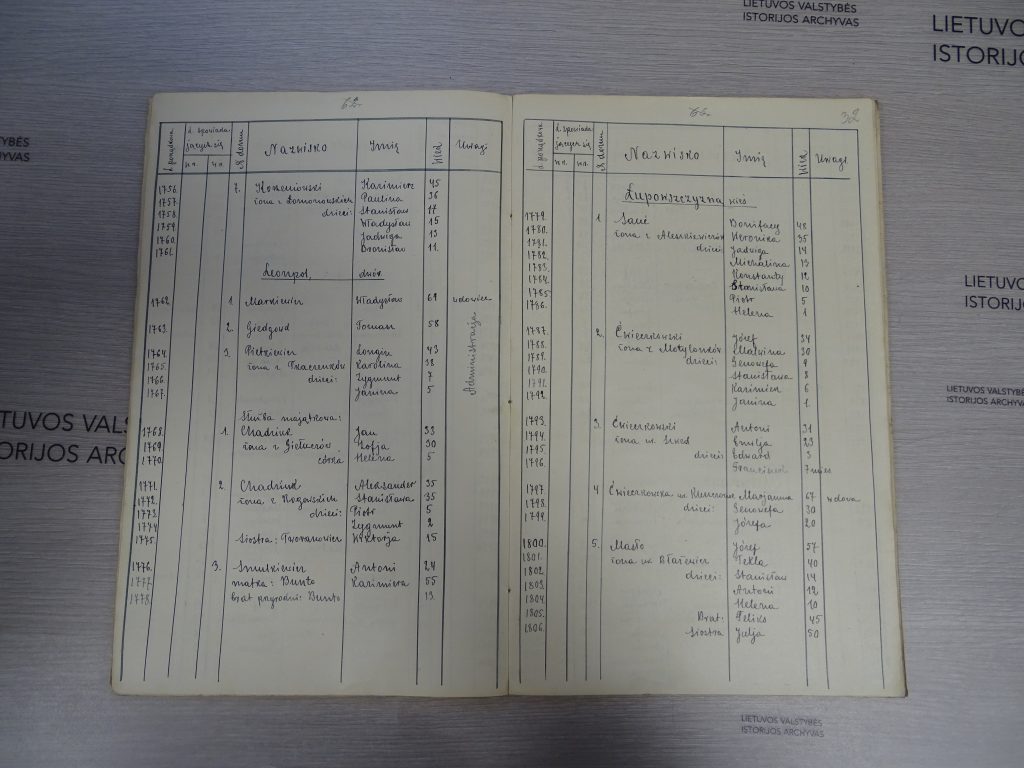 LIETUVOS VALSTYBĖS
ISTORIJOS ARCHYVAS
LIETUVO
ISTORIJO
YBĖS
HYVAS
LIETUVOS VALS
STORIJOS ARC
LIETUVOS
ISTORIJOS
LIETUVOS VALSTYBĖS
ISTORIJOS ARCHYVAS
LIETUVOS VALSTYBĖS
ISTORIJOS ARCHYVAS
N domu Nazwisko Imię Wiek Uwagi
1756. 7. Korzeniowski Kazimierz 45
1757. żona z Paulina 36
1758. dzieci: Stanisław 17
1759. Władysław 15
1760. Jadwiga 13
1761. Bronisław 11.
Leonpol, dwór
1762. 1. Markiewicz Władysław 69 wdowiec
1763. 2. Giedgowd Tomasz 58
Administracja
1764. 3. Pietkiewicz Longin 43
1765. żona z Tkaczenków Karolina 38
1766. dzieci: Zygmunt 7
1767. Janina 5
Służba majątkowa:
1768. 1. Jan 33
1769. żona z Zofja 30
1770. córka Helena 5
1771. 2. Aleksander 35
1772. żona z Stanisława 35
1773. dzieci: Piotr 5
1774. Zygmunt 2
1775. siostra: Wiktorja 15
1776. 3. Smulkiewicz Antoni 24
1777. matka: Bunto Kazimiera 55
1778. brat przyrodni: Bunto 13
32
N domu Nazwisko Imię Wiek Uwagi
Łupowszczyzna wieś
1779. 1. Bonifacy 48
1780. żona z Weronika 35
1781. dzieci: Jadwiga 14
1782. Michalina 13
1783. Konstanty 12
1784. Stanisława 10
1785. Piotr 5
1786. Helena 1
1787. 2. Ćwieczkowski Józef 34
1788. żona z Motylonków Malwina 30
1789. dzieci: Genowefa 9
1790. Stanisława 8
1791. Kazimierz 6
1792. Janina 1.
1793. 3. Ćwieczkowski Antoni 31
1794. żona Emilja 23
1795. dzieci: Edward 3
1796. Franciszek 7 mies
1797. 4 Ćwieczkowska Marjanna 67 wdowa
1798. dzieci: Genowefa 30
1799. Józefa 20
1800. 5. Masło Józef 57
1801. żona Tekla 40
1802 dzieci: Stanisław 14
1803. Antoni 12
1804. Helena 10
1805. Brat: Feliks 45
1806. siostra Julja 50